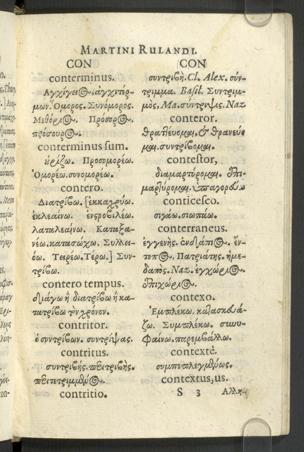 MARTINI RULANDI.
CON
conterminus.
Ἀγχίγειος. ἀγχιτέρ-
μων. Ὅμορος. Συνόμορος.
Μεθόριος. Προσορος.
πρόσουρος.
conterminus sum.
ὁρίζω. Προσομορέω.
Ὁμορέω. συνομορέω.
contero.
Διατρίβω. [ἐκκαρύω.
ἐκλεαίνω.
λαπαλεαίνω. Καταξα-
νέω. κατασώχω. Συλλει-
όω. Τειρέω. Τέρω.] Συν-
τρίβω.
contero tempus.
διάγω ἢ διατρίβω ἢ κα-
τατρίβω τὸν χρόνον.
contritor.
ὁ συντρίβων. συντρίψας.
contritus.
συντριβὴς. πετριβὴς.
contritio.
CON
συντριβὴ. Cl. Alex. σύν-
τριμμα. Basil. Συντριμ-
μὸς, Ma. σύντριψις. Naz.
conteror.
θραύομαι. συντρίβομαι.
contestor,
διαμαρτύρομαι. ἐπι-
μαρτύρομαι.
conticesco.
σιγάω. σιωπάω.
conterraneus.
ἐγγενὴς. ἐνδάπιος. ἔν-
τοπος. Πατριώτης. ἡμε-
δαπὸς. Naz. ἐγχώριος.
ἐπιχώριος.
contexo.
Ἐμπλέκω. κατασκιά-
ζω. Συμπλέκω. συνυ-
φαίνω. παρεμβάλλω.
contextè.
συμπεπλεγμένως.
contextus, us.
S 3 Ἀλλη-